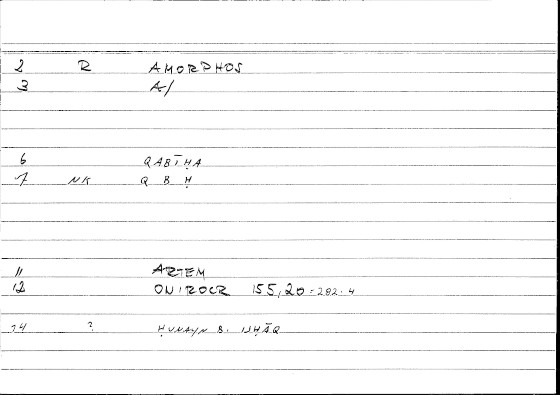 2 R AMORPHOS
3 A/
6 QABĪḤA
7 NK Q B Ḥ
11 ARTEM
12 ONIROCR 155,20 = 282.4
14 ? ḤUNAYN B. ISḤĀQ